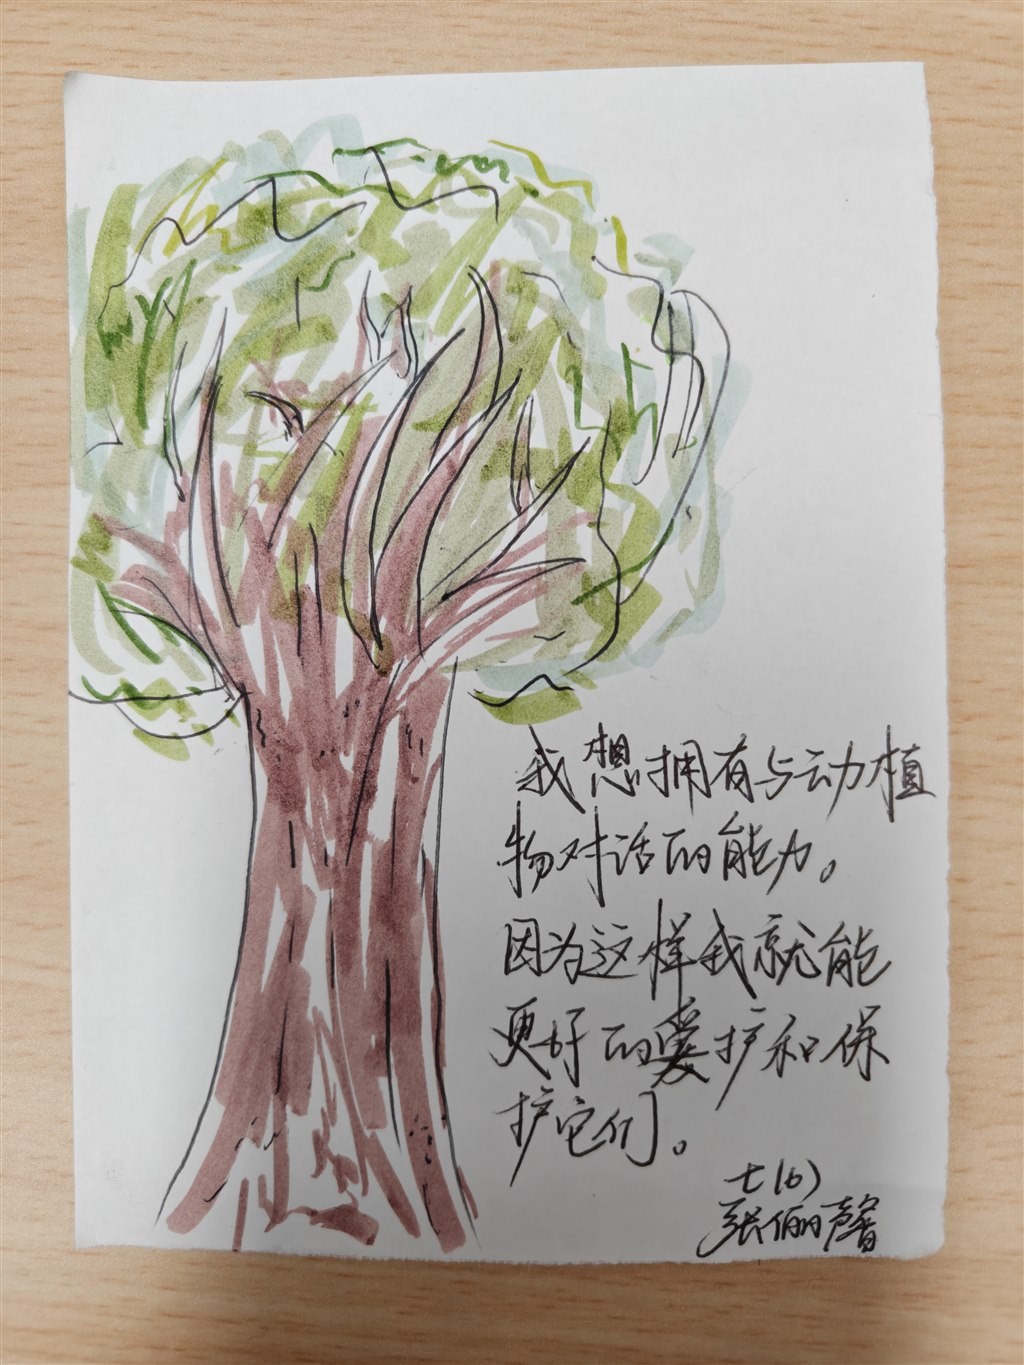 我想拥有与动植
物对话的能力。
因为这样我就能
更好的爱护和保
护它们。
七(6)
张俪馨